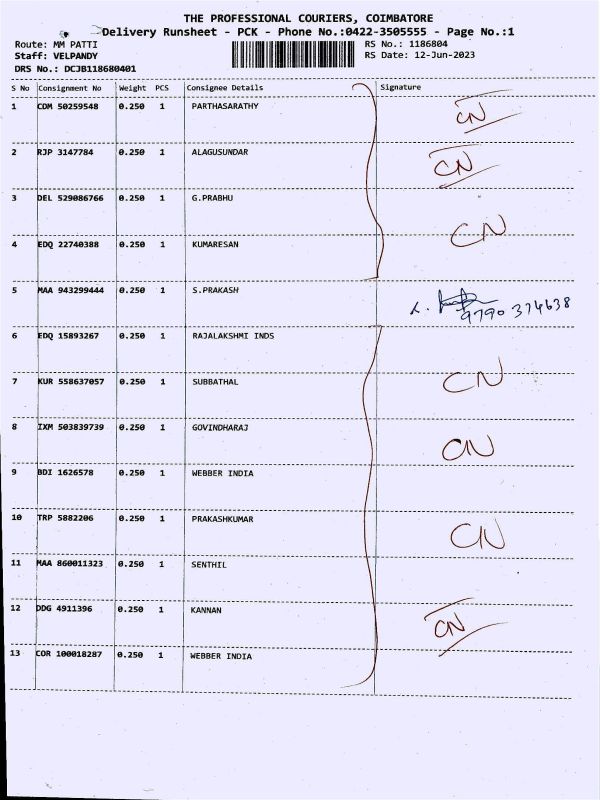 THE PROFESSIONAL COURIERS, COIMBATORE
Delivery Runsheet - PCK - Phone No.:0422-3505555 - Page No.:1
Route: MM PATTI RS No.: 1186804
Staff: VELPANDY RS Date: 12-Jun-2023
DRS No.: DCJB118680401
S No Consignment No Weight PCS Consignee Details Signature
1 COM 50259548 0.250 1 PARTHASARATHY CN
2 RJP 3147784 0.250 1 ALAGUSUNDAR CN
3 DEL 529086766 0.250 1 G.PRABHU CN
4 EDQ 22740388 0.250 1 KUMARESAN
5 MAA 943299444 0.250 1 S.PRAKASH 9790 374638
6 EDQ 15893267 0.250 1 RAJALAKSHMI INDS
7 KUR 558637057 0.250 1 SUBBATHAL CN
8 IXM 503839739 0.250 1 GOVINDHARAJ CN
9 BDI 1626578 0.250 1 WEBBER INDIA
10 TRP 5882206 0.250 1 PRAKASHKUMAR CN
11 MAA 860011323 0.250 1 SENTHIL
12 DDG 4911396 0.250 1 KANNAN CN
13 COR 100018287 0.250 1 WEBBER INDIA